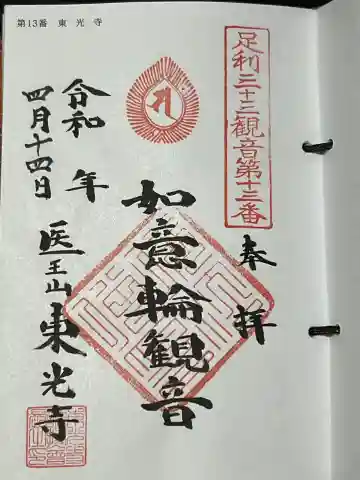 第13番 東光寺
足利三十三観音第十三番
奉拝
如意輪観音
令和 年
四月十四日
医王山東光寺